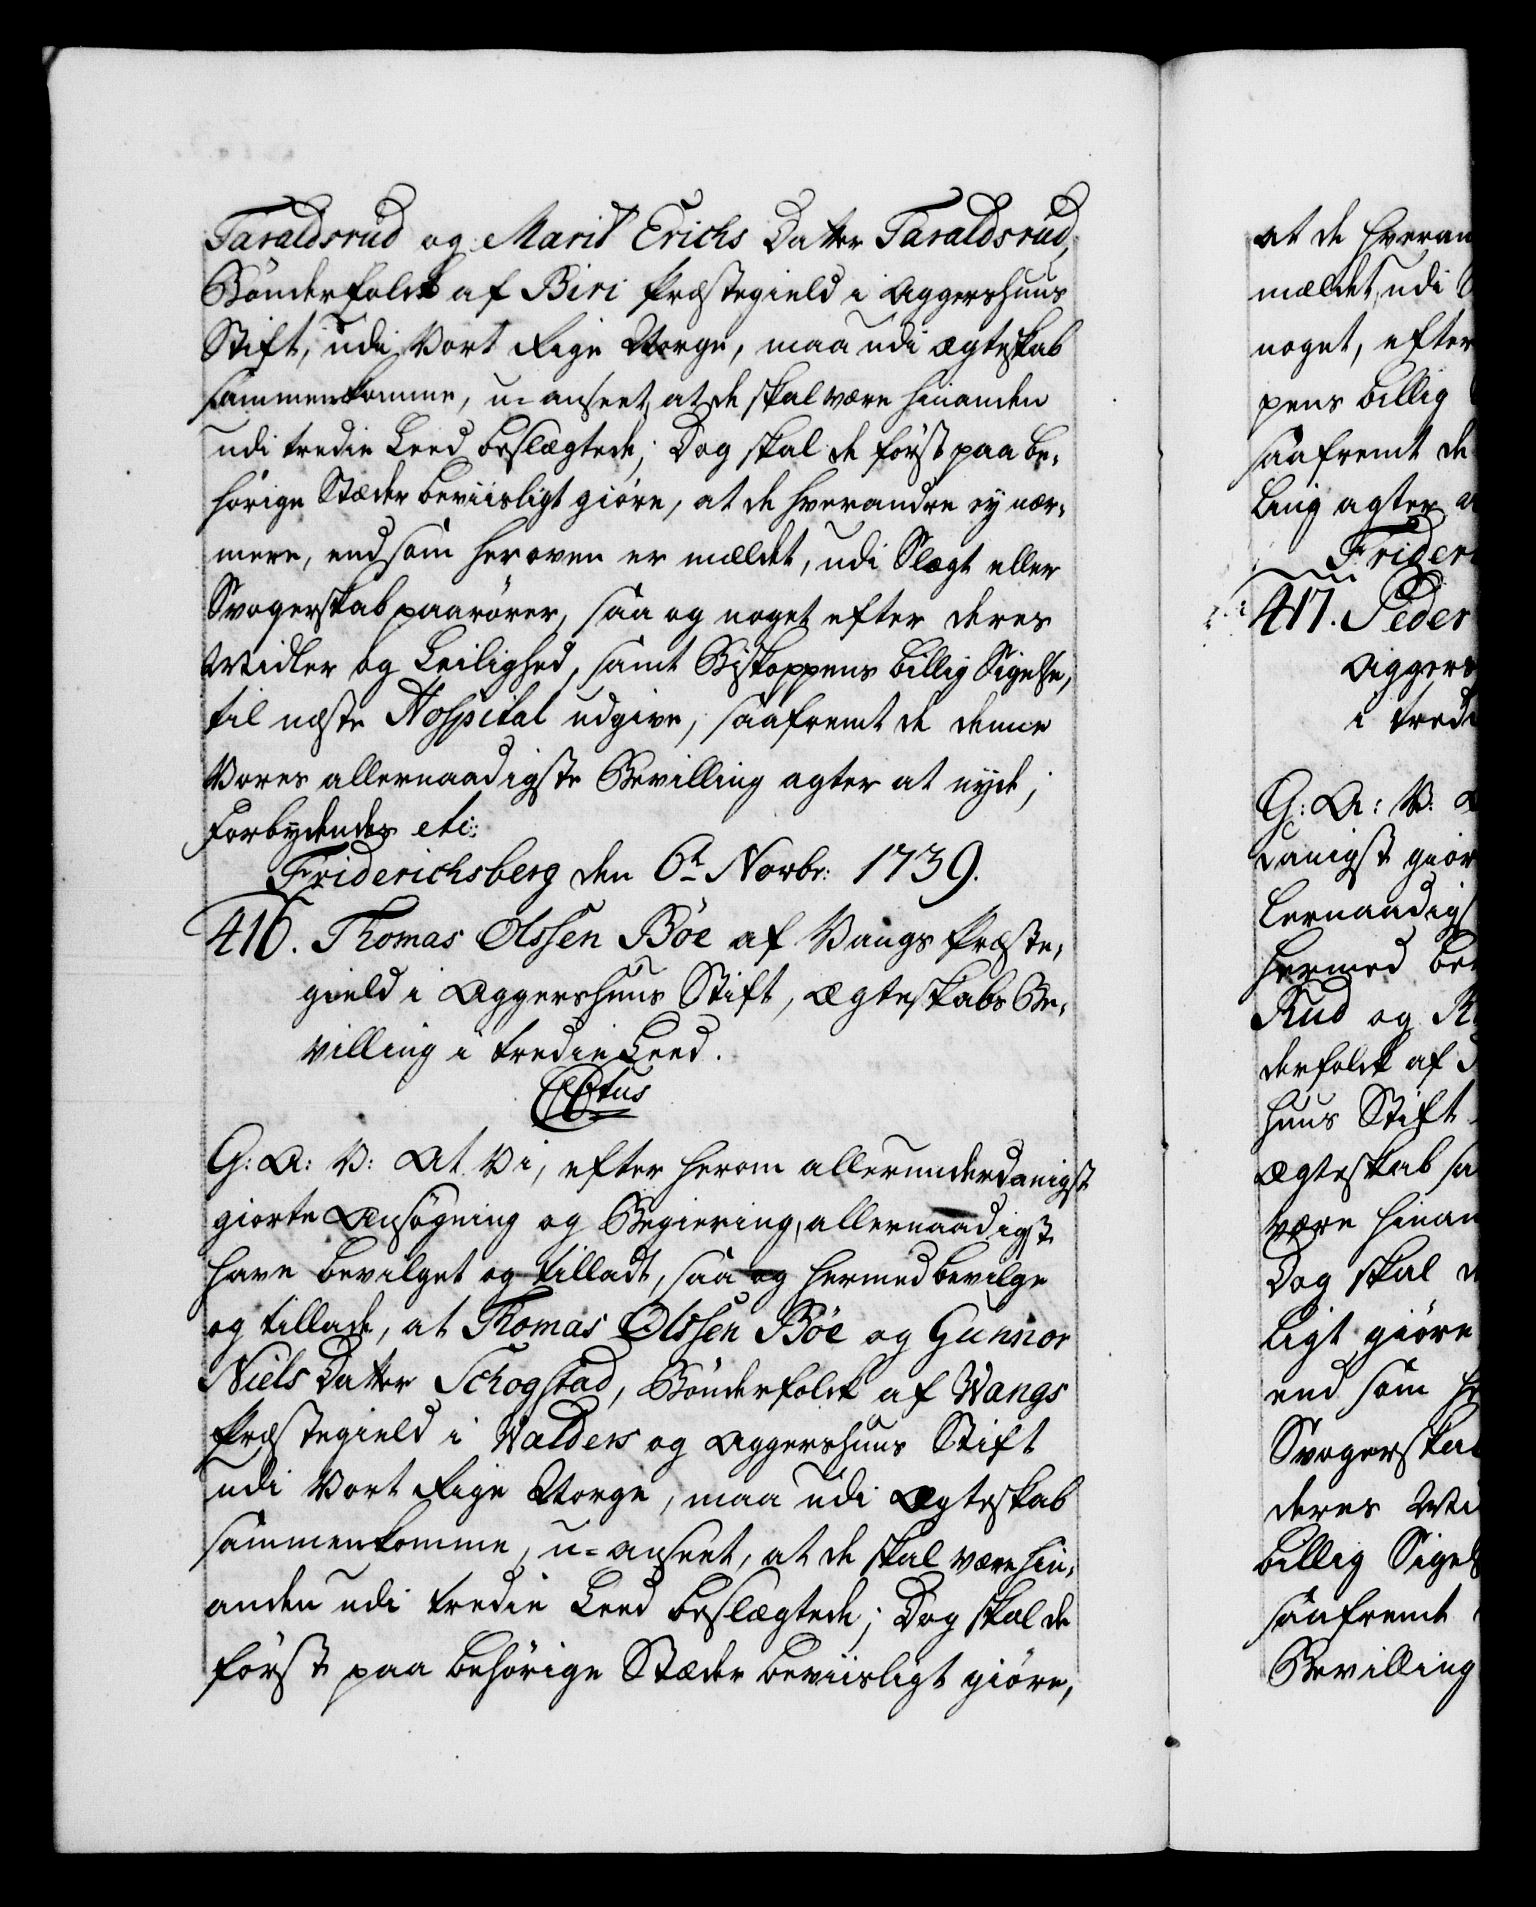 Taraldsrud og Marit Erichs Datter Taraldsrud,
Bönderfolck af Biri Præstegield i Aggershuus
Stift, udi Vort Rige Norge, maa udi ægteskab
sammenkomme, u=anseet, at de skal være hinanden
udi tredie Leed beslægtede; Dog skal de först paa be,
hörige Stæder beviisligt giöre, at de hverandre ey nær,
mere, end som her oven er mældet, udi Slægt eller
Svogerskab paarörer, saa og noget efter deres
Midler og Leilighed, samt Biskoppens billig Sigelse,
til næste Hospital udgive, saafremt de denne
Vores allernaadigste Bevilling agter at nyde;
Forbydendes etc:
Friderichsberg den 6t Novbr: 1739.
416. Thomas Olssen Böe af Vangs Præste,
gield i Aggershuus Stift, Ægteskabs Be,
villing i tredie Leed.
G: A: V: At Vi, efter herom allerunderdanigst
giorte Ansögning og Begiering, allernaadigst
have bevilget og tilladt, saa og hermed bevilge
og tillade, at Thomas Olssen Böe og Gunnor
Niels Datter Schogstad, Bönderfolck af Wangs
Præstegield i Walders og Aggershuus Stift
udi Vort Rige Norge, maa udi Ægteskab
sammenkomme, u=anseet, at de skal være hin,
anden udi tredie Leed beslægtede; Dog skal de
först paa behörige Stæder beviisligt giöre,
at de hveran
mældet, udi S
noget, efter
pens billig
saafremt de
ling agter a
Frider
417. Peder
Aggers
i tredi
G: A: V: A
danigst gior
lernaadigs
hermed be
Rud og
derfolck af
huus Stift
Ægteskab sa
være hinan
Dog skal d
ligt giöre
end som h
Svogerska
deres Mi
billig Sigel
saafremt
Bevilling